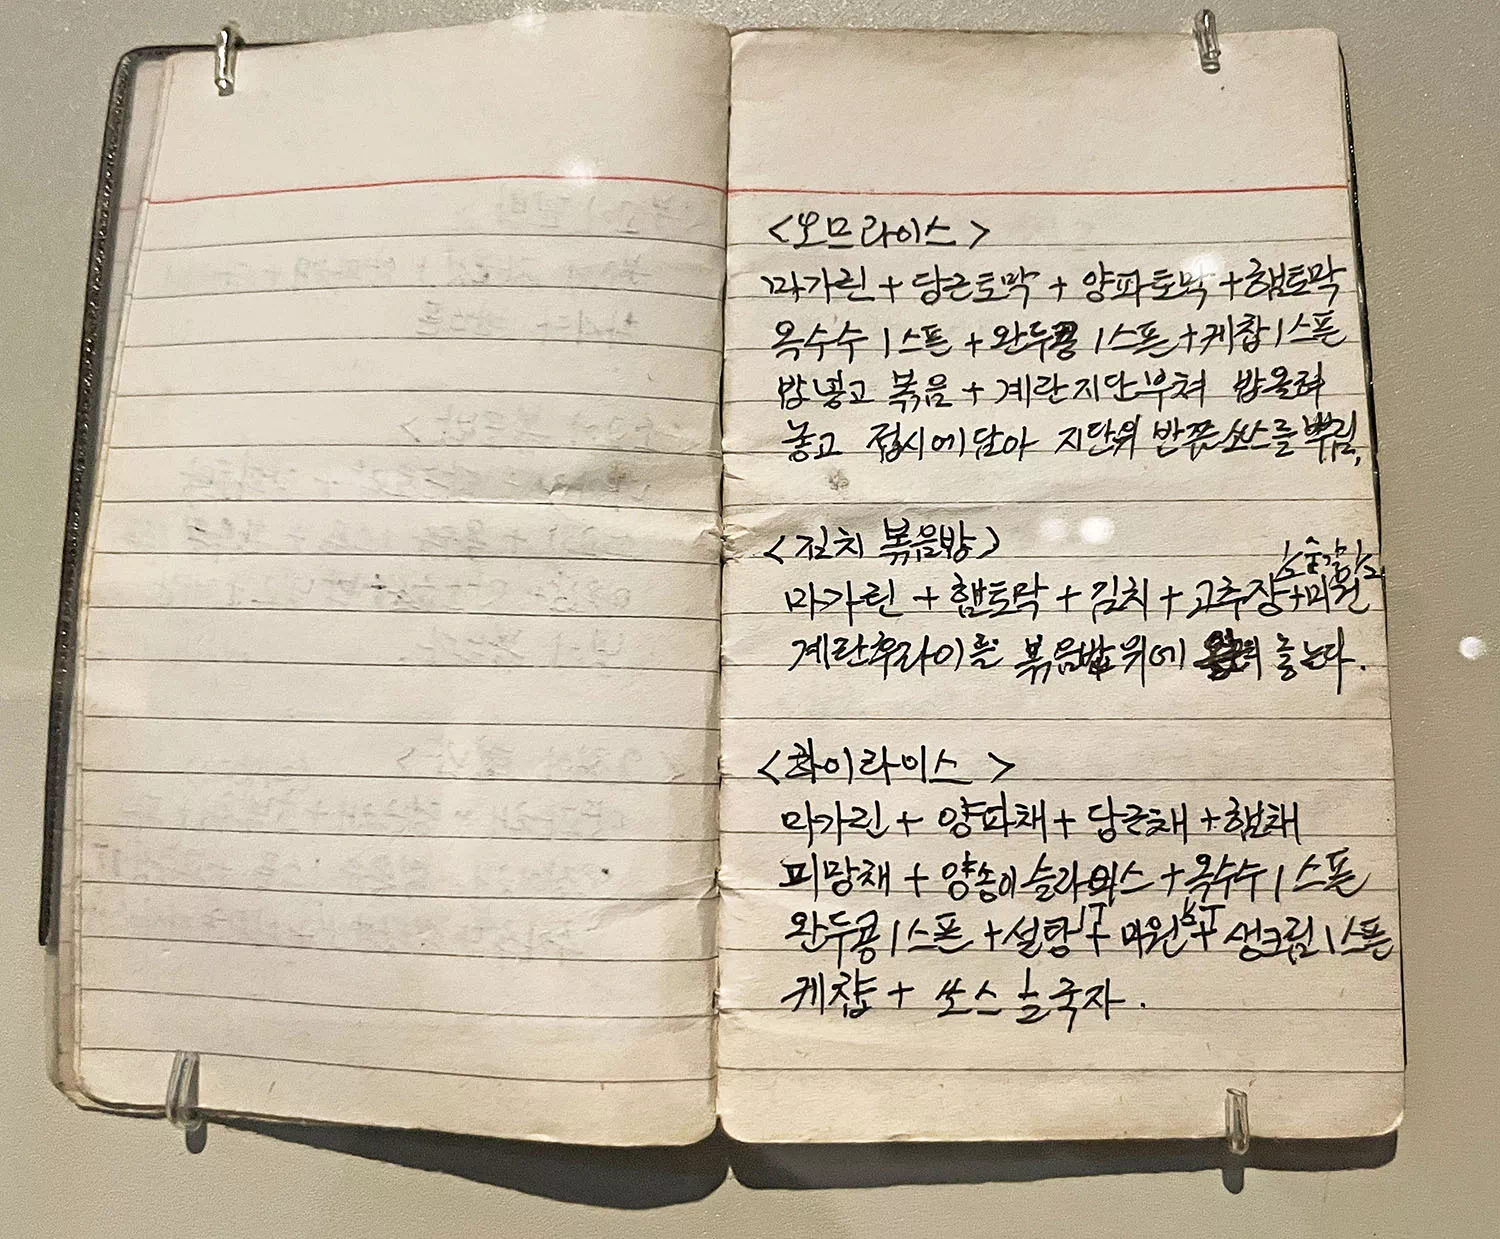 <오므라이스>
마가린 + 당근토막 + 양파토막 + 햄토막
옥수수 1스푼 + 완두콩 1스푼 + 케찹 1스푼
밥넣고 볶음 + 계란지단부쳐 밥올려
놓고 접시에담아 지단위 반쯤 쏘스를 뿌림.
<김치 볶음밥>
마가린 + 햄토막 + 김치 + 고추장 + 미원
계란후라이를 볶음밥 위에 놓는다.
<하이라이스>
마가린 + 양파채 + 당근채 + 햄채
피망채 + 양송이슬라이스 + 옥수수 1스푼
완두콩 1스푼 + 설탕 1T + 미원 + 생크림 1스푼
케찹 + 쏘스 국자.